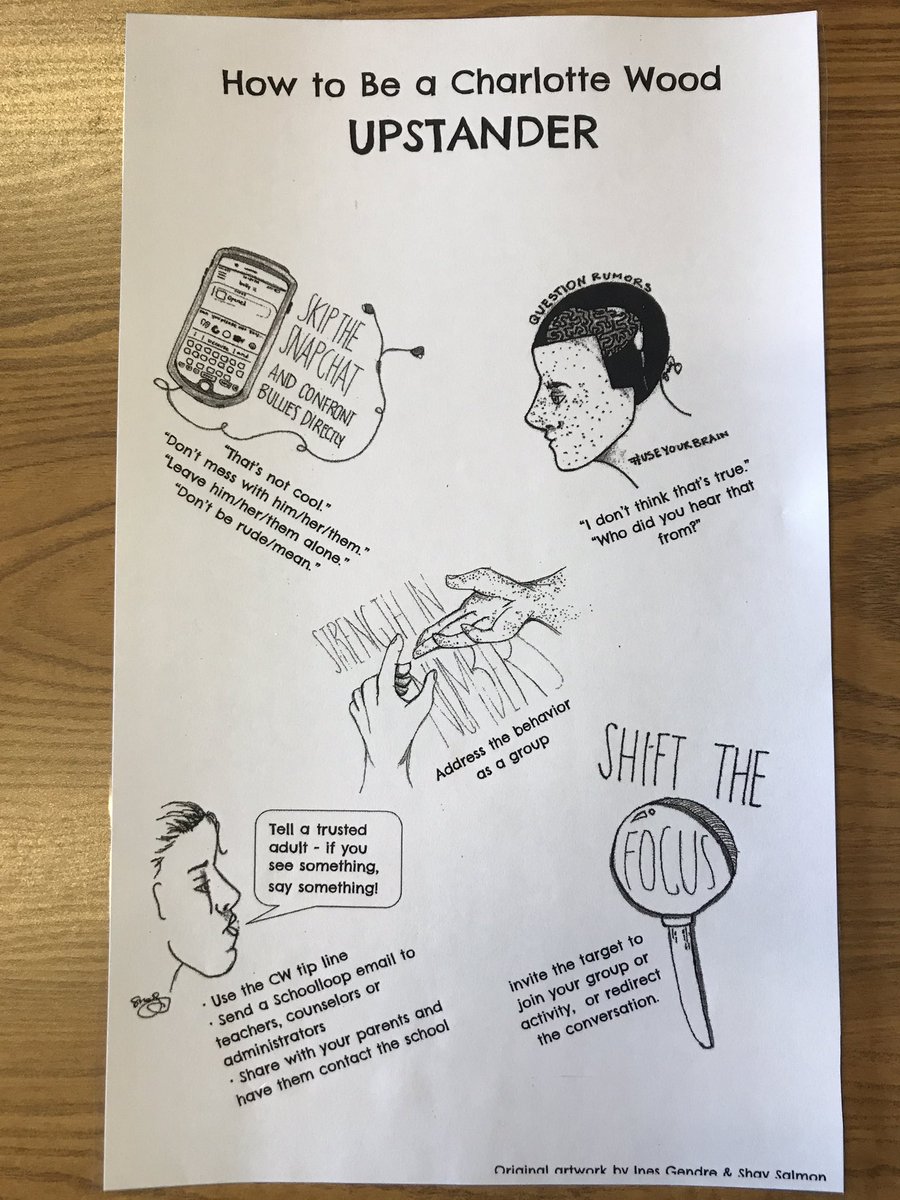 How to Be a Charlotte Wood
UPSTANDER
SKIP THE
SNAPCHAT
AND CONFRONT
BULLIES DIRECTLY
"That's not cool."
"Don't mess with him/her/them."
"Leave him/her/them alone."
"Don't be rude/mean."
QUESTION RUMORS
#USEYOURBRAIN
"I don't think that's true."
"Who did you hear that
from?"
STRENGTH IN
NUMBERS
Address the behavior
as a group
Tell a trusted
adult - if you
see something,
say something!
· Use the CW tip line
· Send a Schoolloop email to
teachers, counselors or
administrators
· Share with your parents and
have them contact the school
SHIFT THE
FOCUS
invite the target to
join your group or
activity, or redirect
the conversation.
Original artwork by Ines Gendre & Shay Salmon